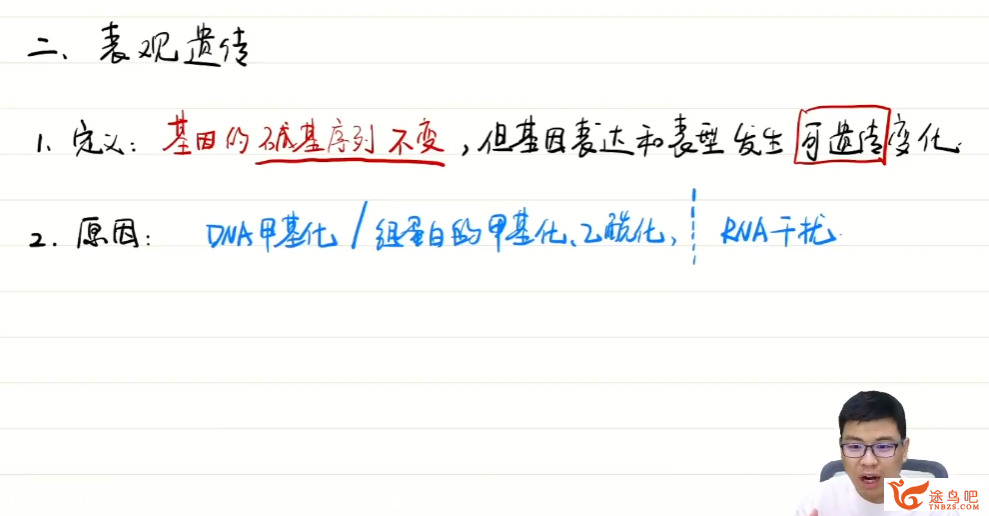 二、表观遗传
1. 定义：基因的碱基序列不变，但基因表达和表型发生可遗传变化.
2. 原因： DNA甲基化 / 组蛋白的甲基化、乙酰化， RNA干扰.
途鸟吧
TNBZS.COM